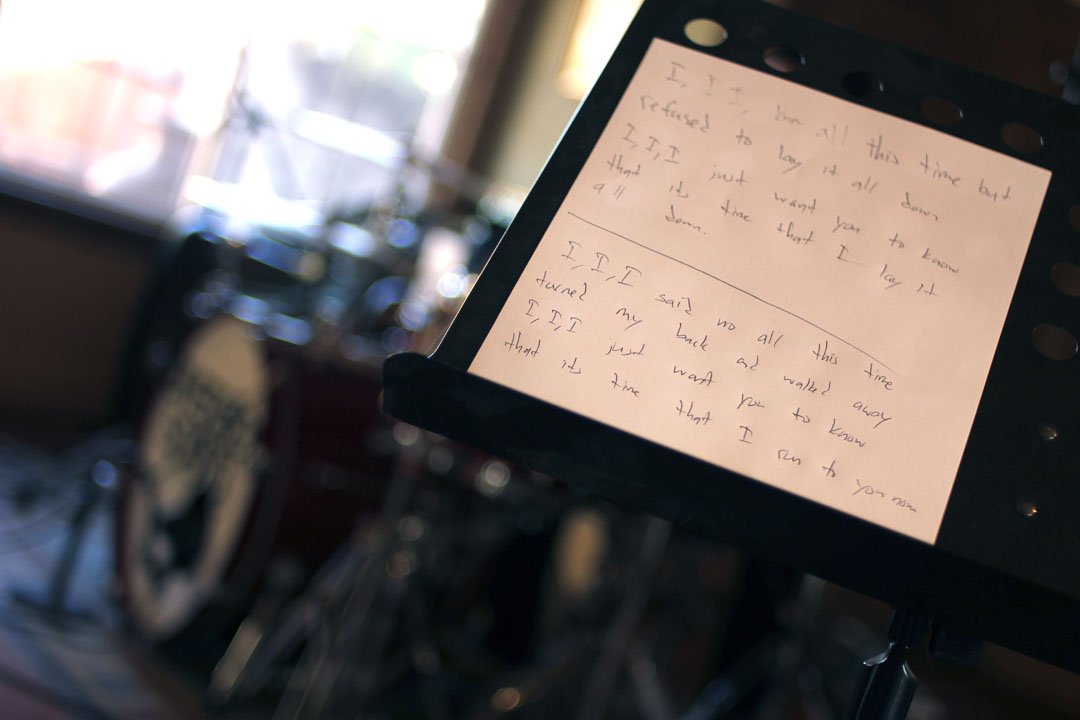 I, I I, knew all this time but
refused to lay it all down
I, I, I just want you to know
that its time that I lay it
all down.
I, I, I said no all this time
turned my back and walked away
I, I, I just want you to know
that its time that I run to you now